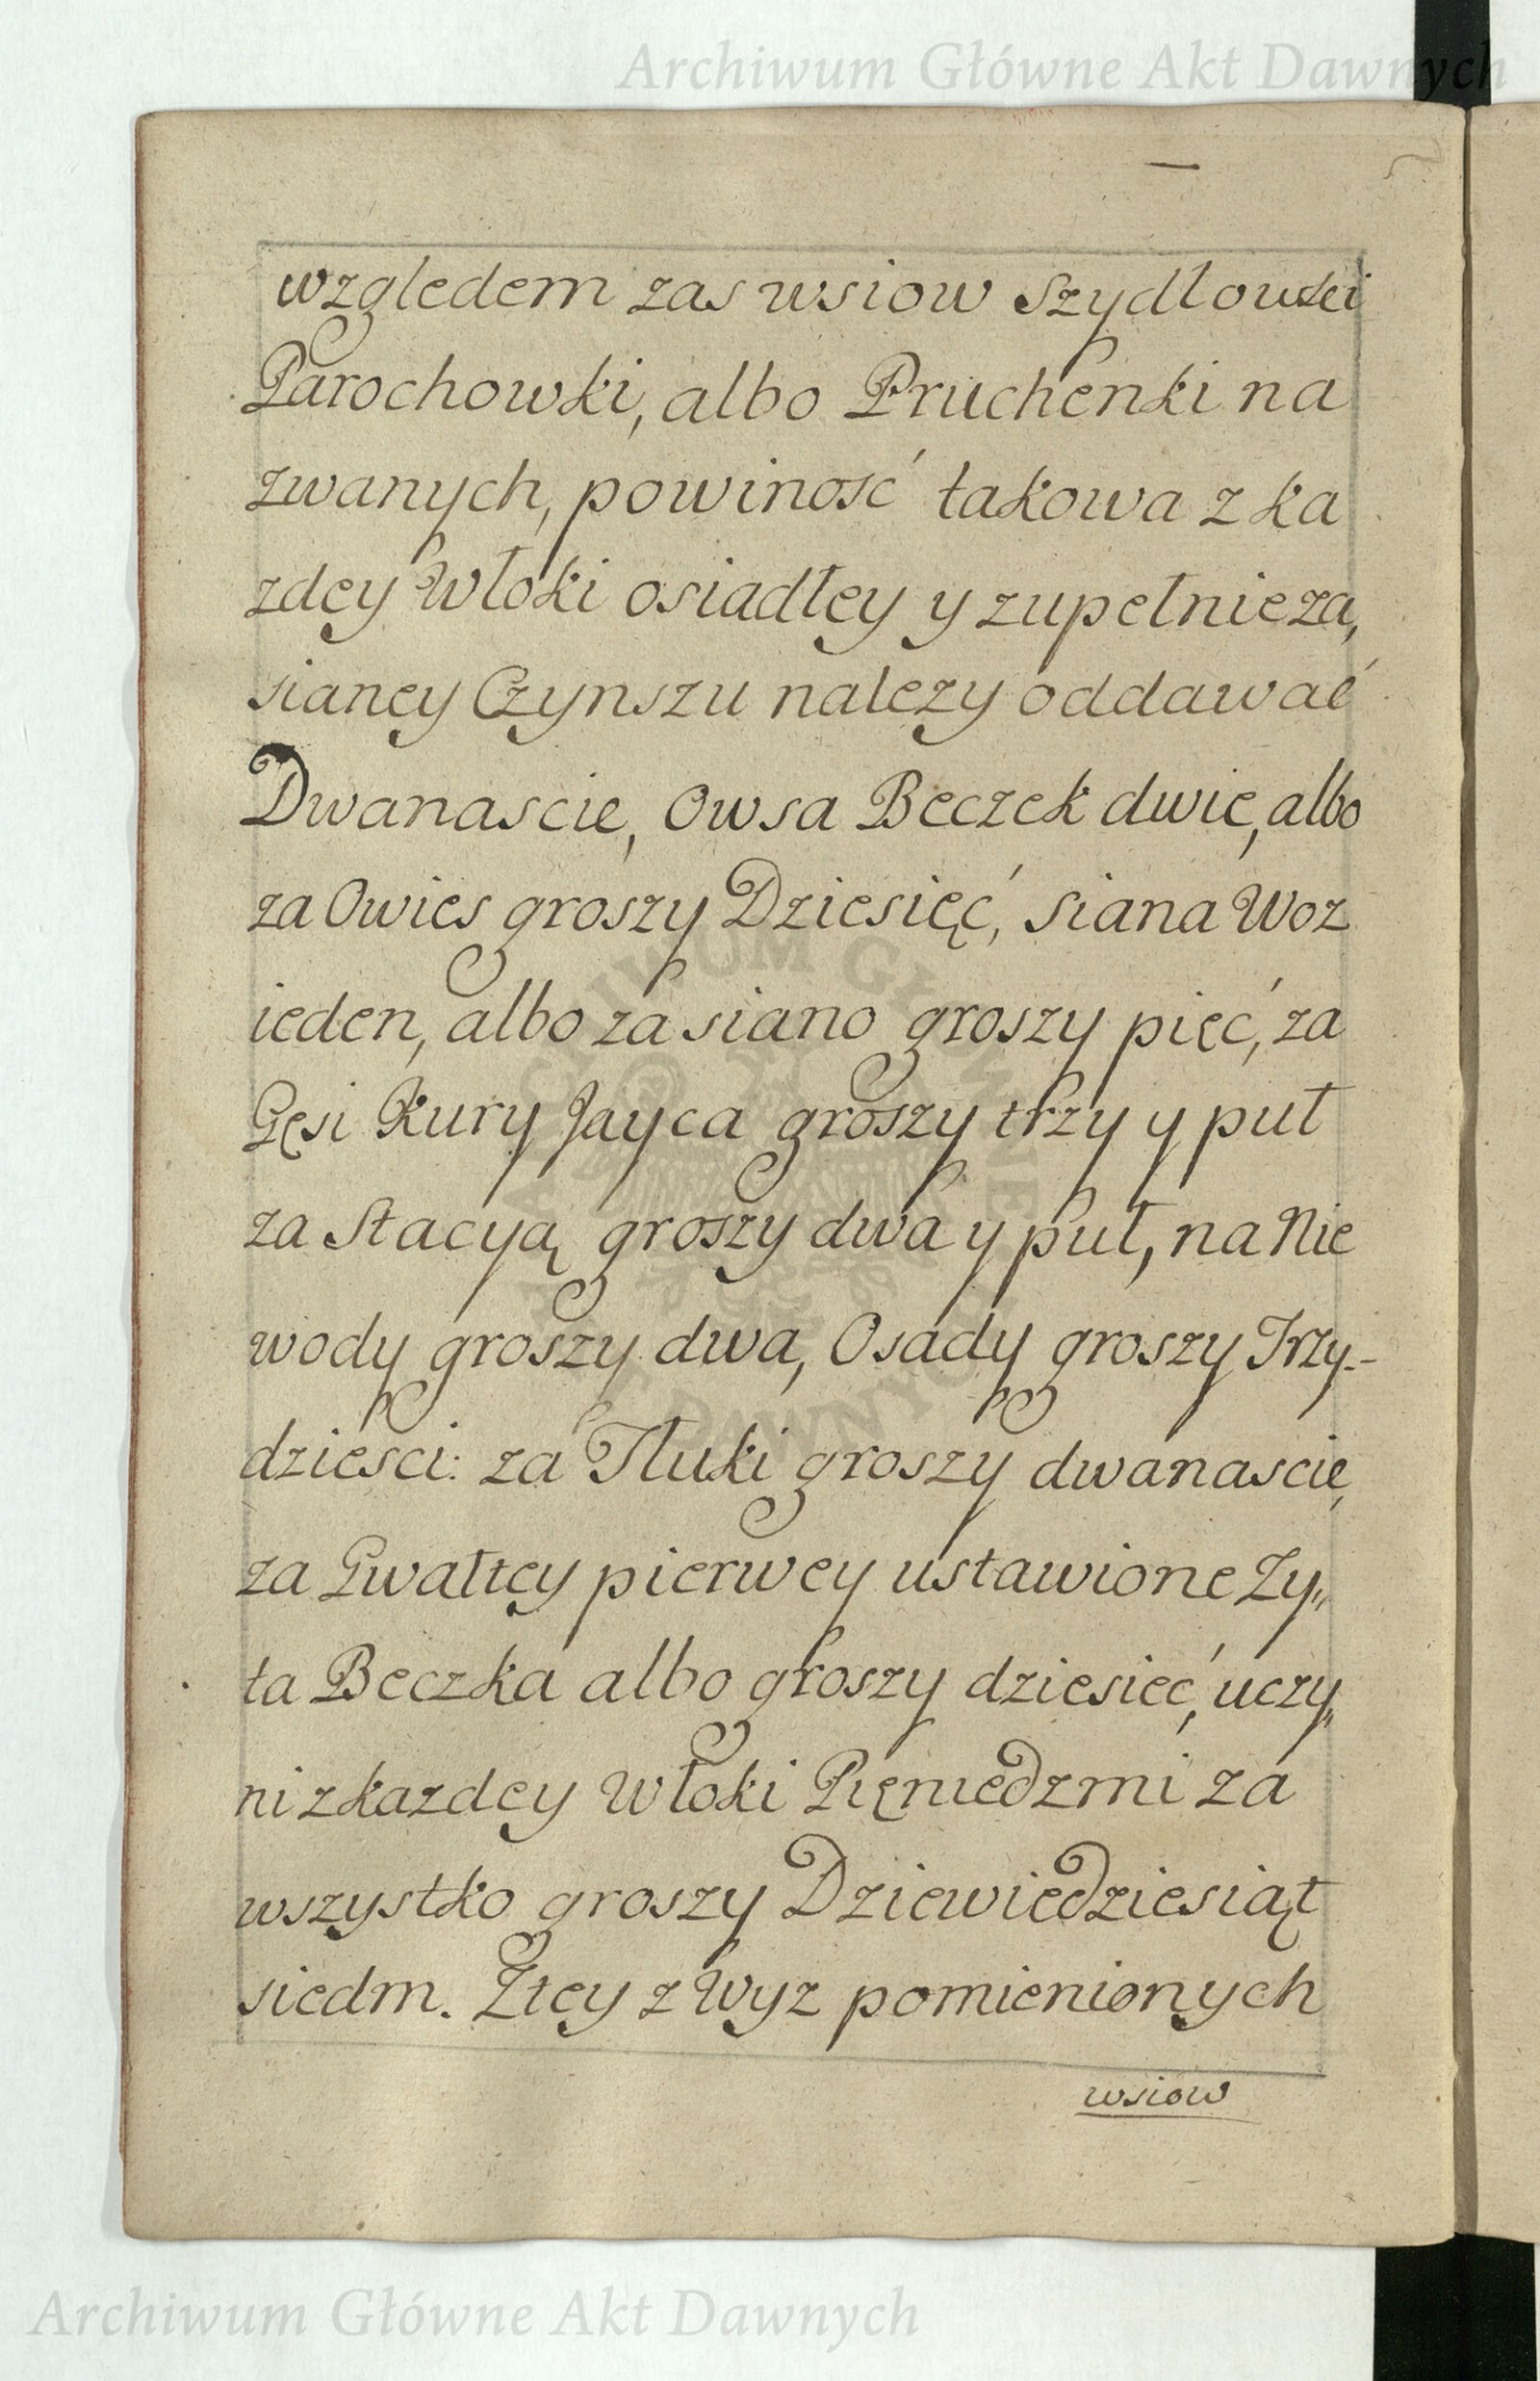 Archiwum Główne Akt Dawnych
względem zas wsiow Szydłowki
Parochowki, albo Pruchenki na
zwanych, powiność takowa z ka
zdey Włoki osiadłey y zupełnie za,
sianey Czynszu nalezy oddawać
Dwanascie, Owsa Beczek dwie, albo
za Owies groszy Dziesięć, siana Woz
ieden, albo za siano groszy pięć, za
Gęsi Kury Jayca groszy trzy y puł
za Stacyą groszy dwa y puł, na Nie
wody groszy dwa, Osady groszy Trzy-
dziesci: za Tłuki groszy dwanascie,
za Gwałtey pierwey ustawione Zy,,
ta Beczka albo groszy dziesieć, uczy,,
ni z kazdey Włoki Pięniedzmi za
wszystko groszy Dziewiedziesiąt
siedm. Ztey z Wyz pomienionych
wsiow
Archiwum Główne Akt Dawnych